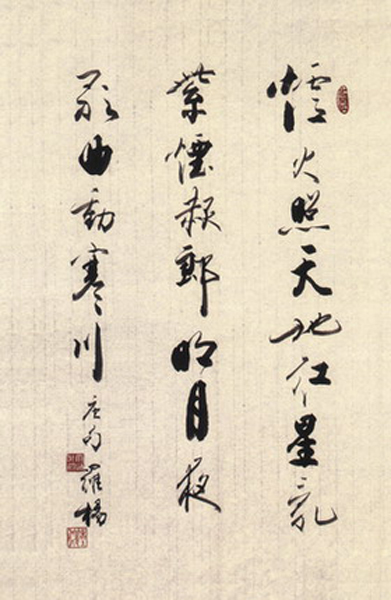 爐火照天地紅星乱
紫煙赧郎明月夜
歌曲動寒川
唐句 羅楊